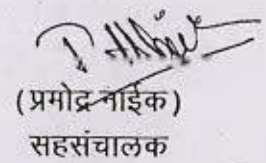 (प्रमोद्र नाईक)
सहसंचालक